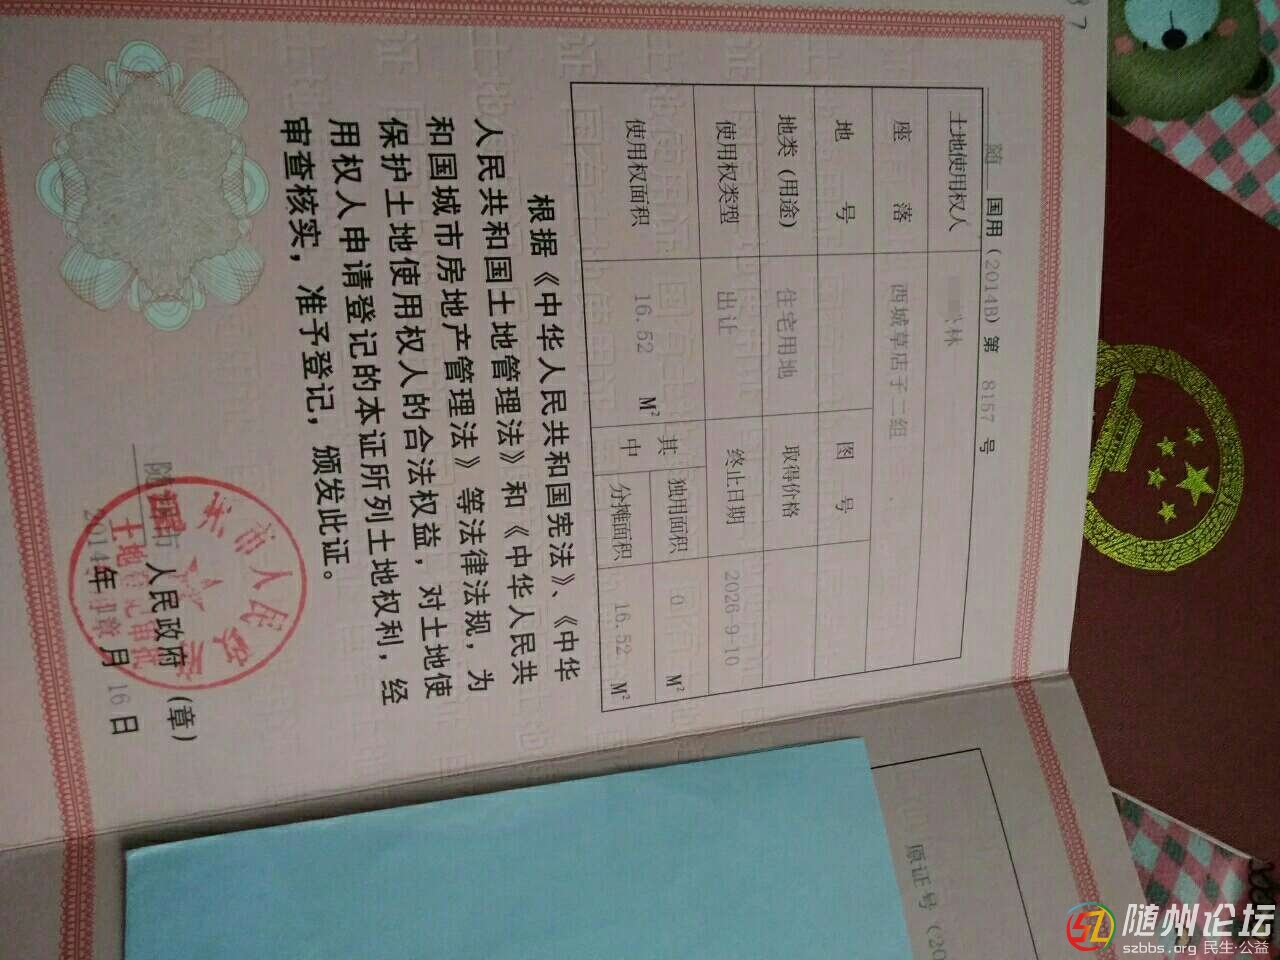 随 国用（2014B）第 8157 号
土地使用权人 林
座落 西城草店子二组
地号 图号
地类（用途） 住宅用地 取得价格
使用权类型 出让 终止日期 2026-9-10
使用权面积 16.52 M² 其中 独用面积 0 M²
分摊面积 16.52 M²
根据《中华人民共和国宪法》、《中华
人民共和国土地管理法》和《中华人民共
和国城市房地产管理法》等法律法规，为
保护土地使用权人的合法权益，对土地使
用权人申请登记的本证所列土地权利，经
审查核实，准予登记，颁发此证。
人民政府（章）
2014年 月 16日
原证号（20
随州论坛
szbbs.org 民生·公益